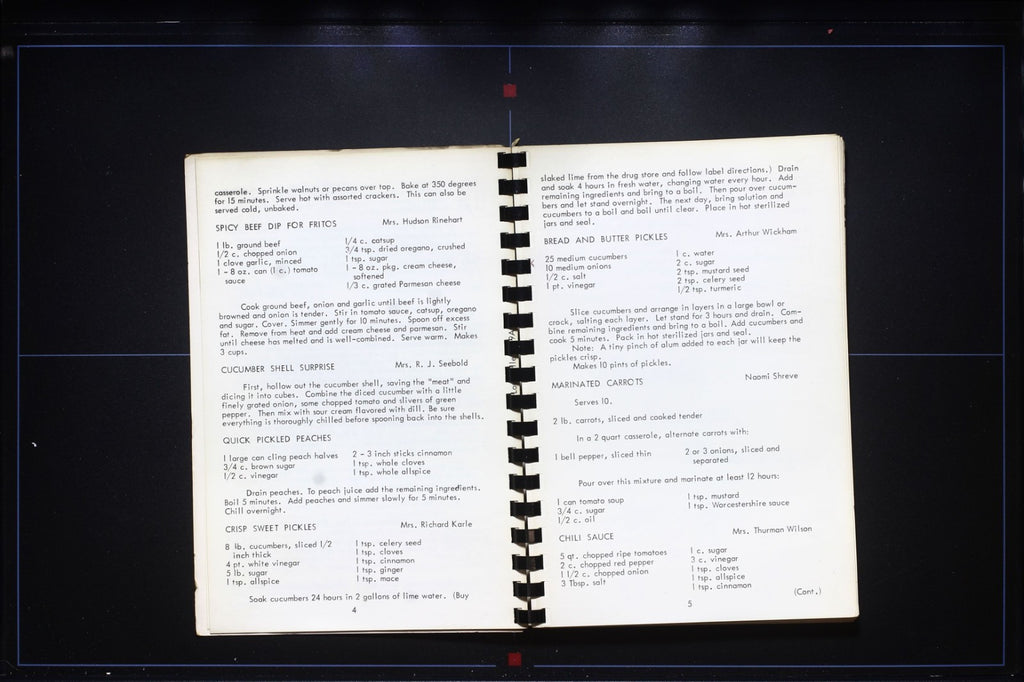 casserole. Sprinkle walnuts or pecans over top. Bake at 350 degrees
for 15 minutes. Serve hot with assorted crackers. This can also be
served cold, unbaked.
SPICY BEEF DIP FOR FRITOS Mrs. Hudson Rinehart
1 lb. ground beef
1/2 c. chopped onion
1 clove garlic, minced
1 - 8 oz. can (1 c.) tomato
sauce
1/4 c. catsup
3/4 tsp. dried oregano, crushed
1 tsp. sugar
1 - 8 oz. pkg. cream cheese,
softened
1/3 c. grated Parmesan cheese
Cook ground beef, onion and garlic until beef is lightly
browned and onion is tender. Stir in tomato sauce, catsup, oregano
and sugar. Cover. Simmer gently for 10 minutes. Spoon off excess
fat. Remove from heat and add cream cheese and parmesan. Stir
until cheese has melted and is well-combined. Serve warm. Makes
3 cups.
CUCUMBER SHELL SURPRISE Mrs. R. J. Seebold
First, hollow out the cucumber shell, saving the "meat" and
dicing it into cubes. Combine the diced cucumber with a little
finely grated onion, some chopped tomato and slivers of green
pepper. Then mix with sour cream flavored with dill. Be sure
everything is thoroughly chilled before spooning back into the shells.
QUICK PICKLED PEACHES
1 large can cling peach halves
3/4 c. brown sugar
1/2 c. vinegar
2 - 3 inch sticks cinnamon
1 tsp. whole cloves
1 tsp. whole allspice
Drain peaches. To peach juice add the remaining ingredients.
Boil 5 minutes. Add peaches and simmer slowly for 5 minutes.
Chill overnight.
CRISP SWEET PICKLES Mrs. Richard Karle
8 lb. cucumbers, sliced 1/2
inch thick
4 pt. white vinegar
5 lb. sugar
1 tsp. allspice
1 tsp. celery seed
1 tsp. cloves
1 tsp. cinnamon
1 tsp. ginger
1 tsp. mace
Soak cucumbers 24 hours in 2 gallons of lime water. (Buy
4
slaked lime from the drug store and follow label directions.) Drain
and soak 4 hours in fresh water, changing water every hour. Add
remaining ingredients and bring to a boil. Then pour over cucum-
bers and let stand overnight. The next day, bring solution and
cucumbers to a boil and boil until clear. Place in hot sterilized
jars and seal.
BREAD AND BUTTER PICKLES Mrs. Arthur Wickham
25 medium cucumbers
10 medium onions
1/2 c. salt
1 pt. vinegar
1 c. water
2 c. sugar
2 tsp. mustard seed
2 tsp. celery seed
1/2 tsp. turmeric
Slice cucumbers and arrange in layers in a large bowl or
crock, salting each layer. Let stand for 3 hours and drain. Com-
bine remaining ingredients and bring to a boil. Add cucumbers and
cook 5 minutes. Pack in hot sterilized jars and seal.
Note: A tiny pinch of alum added to each jar will keep the
pickles crisp.
Makes 10 pints of pickles.
MARINATED CARROTS Naomi Shreve
Serves 10.
2 lb. carrots, sliced and cooked tender
In a 2 quart casserole, alternate carrots with:
1 bell pepper, sliced thin
2 or 3 onions, sliced and
separated
Pour over this mixture and marinate at least 12 hours:
1 can tomato soup
3/4 c. sugar
1/2 c. oil
1 tsp. mustard
1 tsp. Worcestershire sauce
CHILI SAUCE Mrs. Thurman Wilson
5 qt. chopped ripe tomatoes
2 c. chopped red pepper
1 1/2 c. chopped onion
3 Tbsp. salt
1 c. sugar
3 c. vinegar
1 tsp. cloves
1 tsp. allspice
1 tsp. cinnamon
(Cont.)
5